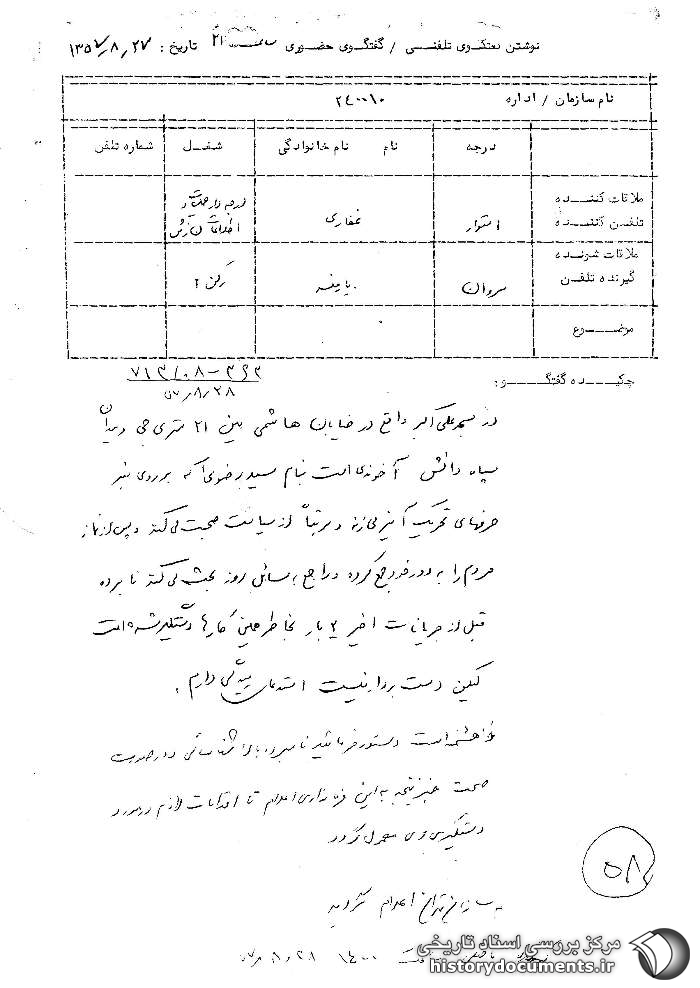 نوشتن گفتگوی تلفنـــی / گفتگـوی حضـوری ساعـــت ۲۱ تاریخ : ۱۳۵۷٫۸٫۲۷
نام سازمان / اداره ۲۴۰۰۱۰
درجه نام نام خانوادگی شغــل شماره تلفن
ملاقات کننـــده
تلفـن کننـده استوار غفاری
ملاقات شونـده
گیرنده تلفـن سروان رکن ۲
موضـــوع
۷۱۳/۰۸-۳۶۲
۵۷٫۸٫۲۸
چکیـــده گفتگـــو:
در مسجد علی اکبر واقع در خیابان هاشمی بین ۲۱ متری جی و میدان
سپاه دانش آخوندی است بنام سید رضوی که بر روی منبر
حرفهای تحریک آمیز میزند و مرتباً از سیاست صحبت می‌کند و پس از نماز
مردم را به دور خود جمع کرده و راجع به مسائل روز بحث می‌کند نامبرده
قبل از جریانات اخیر ۲ بار بخاطر همین کارها دستگیر شده است
لیکن دست بردار نیست استدعای رسیدگی دارم .
خواهشمند است دستور فرمائید نامبرده بالا شناسائی و در صورت
صحت خبر نتیجه به این فرمانداری اعلام تا اقدامات لازم در مورد
دستگیری وی معمول گردد
به سازمان تهران اعلام گردید
۱۴۰۰ ۵۷٫۸٫۲۸
۵۸
مرکز بررسی اسناد تاریخی
historydocuments.ir